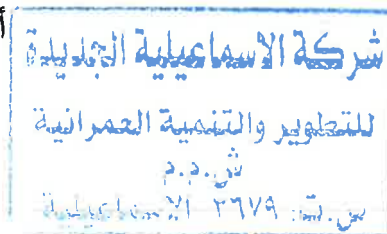 شركة الاسماعيلية الجديدة
للتطوير والتنمية العمرانية
ش.م.م
س.ت: ٢٦٧٩ الإسماعيلية